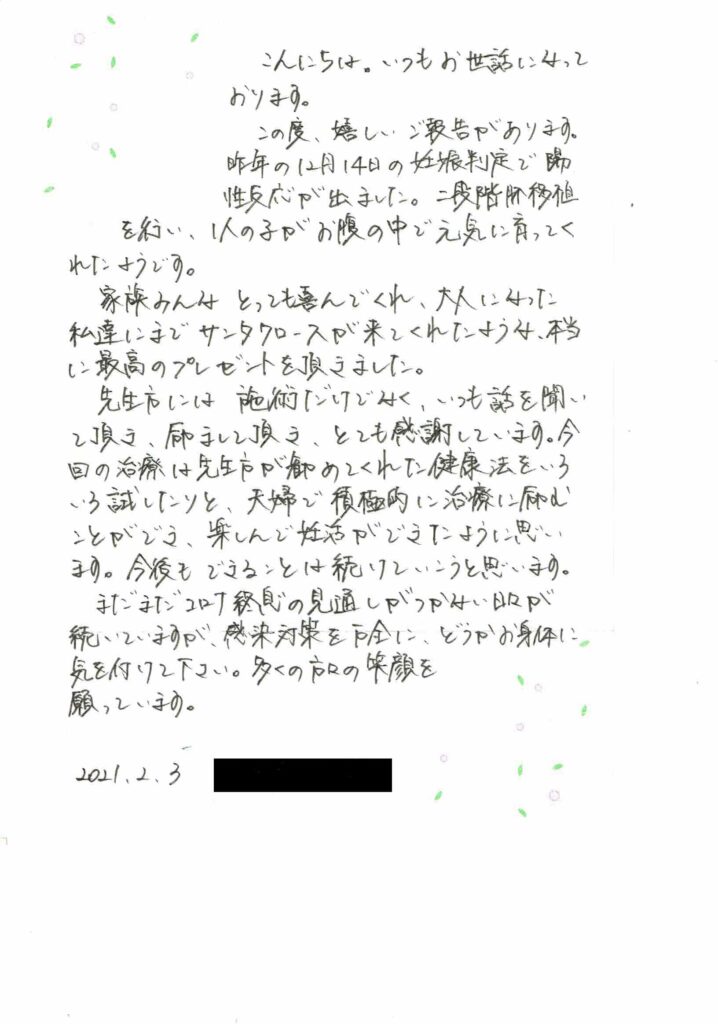 こんにちは。いつもお世話になって
おります。
この度、嬉しいご報告があります。
昨年の12月14日の妊娠判定で陽
性反応が出ました。二段階胚移植
を行い、1人の子がお腹の中で元気に育ってく
れたようです。
家族みんな とっても喜んでくれ、大人になった
私達にまでサンタクロースが来てくれたような、本当
に最高のプレゼントを頂きました。
先生方には 施術だけでなく、いつも話を聞い
て頂き、励まして頂き、とても感謝しています。今
回の治療は先生方が勧めてくれた健康法をいろ
いろ試したりと、夫婦で積極的に治療に励む
ことができ、楽しんで妊活ができたように思い
ます。今後も できることは続けていこうと思います。
まだまだコロナ終息の見通しがつかない日々が
続いていますが、感染対策を万全に、どうかお身体に
気を付けて下さい。多くの方々の笑顔を
願っています。
2021.2.3